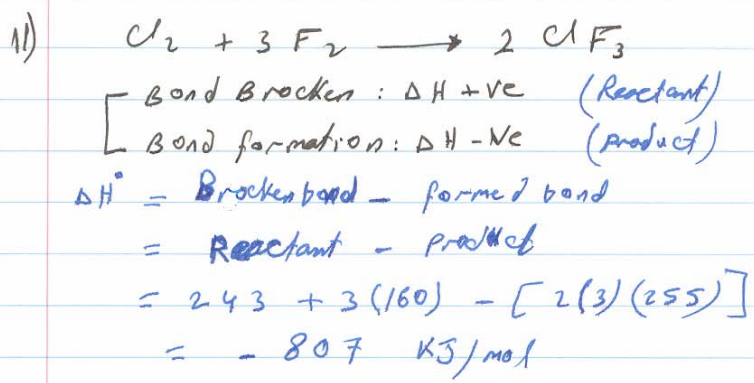 11) Cl₂ + 3 F₂ → 2 ClF₃
Bond Brocken : ΔH +ve (Reactant)
Bond formation : ΔH -Ne (product)
ΔH° = Brocken bond - formed bond
= Reactant - product
= 243 + 3(160) - [2(3)(255)]
= - 807 KJ/mol